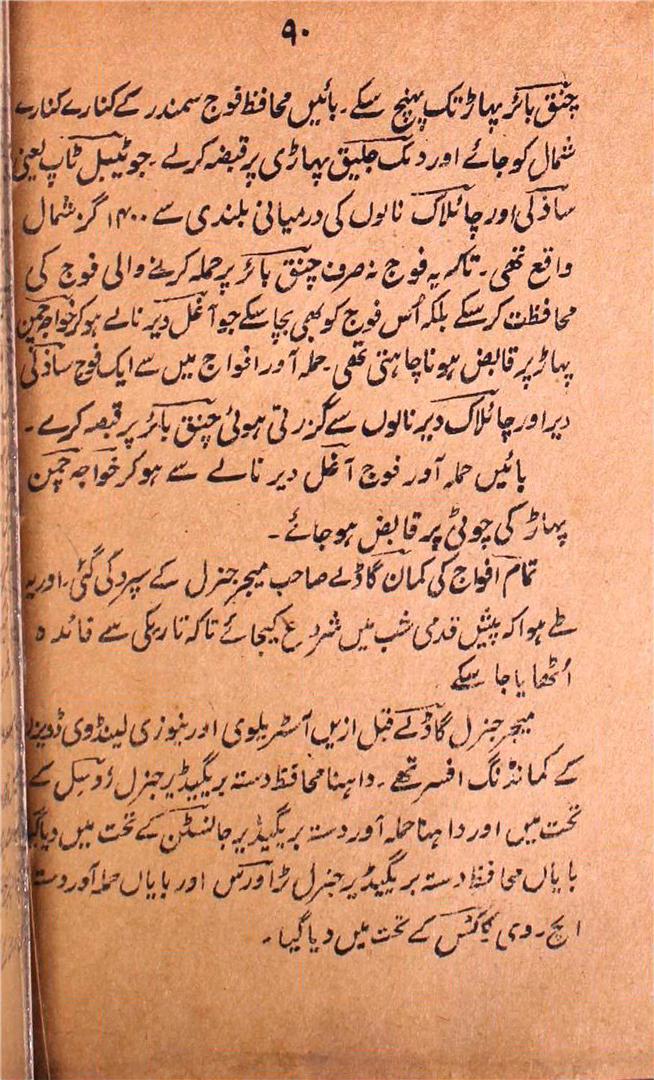 ۹۰
چنق بائر پہاڑ تک پہنچ سکے۔ بائیں محافظ فوج سمندر کے کنارے کنارے
شمال کو جائے اور دمک جلیق پہاڑی پر قبضہ کرلے۔ جو ٹیبل ٹاپ یعنی
ساذلی اور چائلاک نالوں کی درمیانی بلندی سے ۱۴۰۰ گز شمال
واقع تھی۔ تاکہ یہ فوج نہ صرف چنق بائر پر حملہ کرنے والی فوج کی
محافظت کرسکے بلکہ اُس فوج کو بھی بچا سکے جو آغل دیر نالے ہوکر خواجہ چمن
پہاڑ پر قابض ہونا چاہتی تھی۔ حملہ آور افواج میں سے ایک فوج ساذلی
دیر اور چائلاک دیر نالوں سے گزرتی ہوئی چنق بائر پر قبضہ کرے۔
بائیں حملہ آور فوج آغل دیر نالے سے ہوکر خواجہ چمن
پہاڑ کی چوٹی پر قابض ہوجائے۔
تمام افواج کی کمان گاڈلے صاحب میجر جنرل کے سپرد کی گئی۔ اور یہ
طے ہوا کہ پیش قدمی شب میں شروع کیجائے تاکہ تاریکی سے فائدہ
اُٹھایا جا سکے
میجر جنرل گاڈلے قبل ازیں آسٹریلوی اور نیوزی لینڈوی ڈویزن
کے کمانڈنگ افسر تھے۔ داہنا محافظ دستہ بریگیڈیر جنرل رُوسِل کے
تحت میں اور داہنا حملہ آور دستہ بریگیڈیر جانسٹن کے تحت میں دیا گیا
بایاں محافظ دستہ بریگیڈیر جنرل ٹراورس اور بایاں حملہ آور دستہ
ایچ۔ وی کاکس کے تحت میں دیا گیا۔